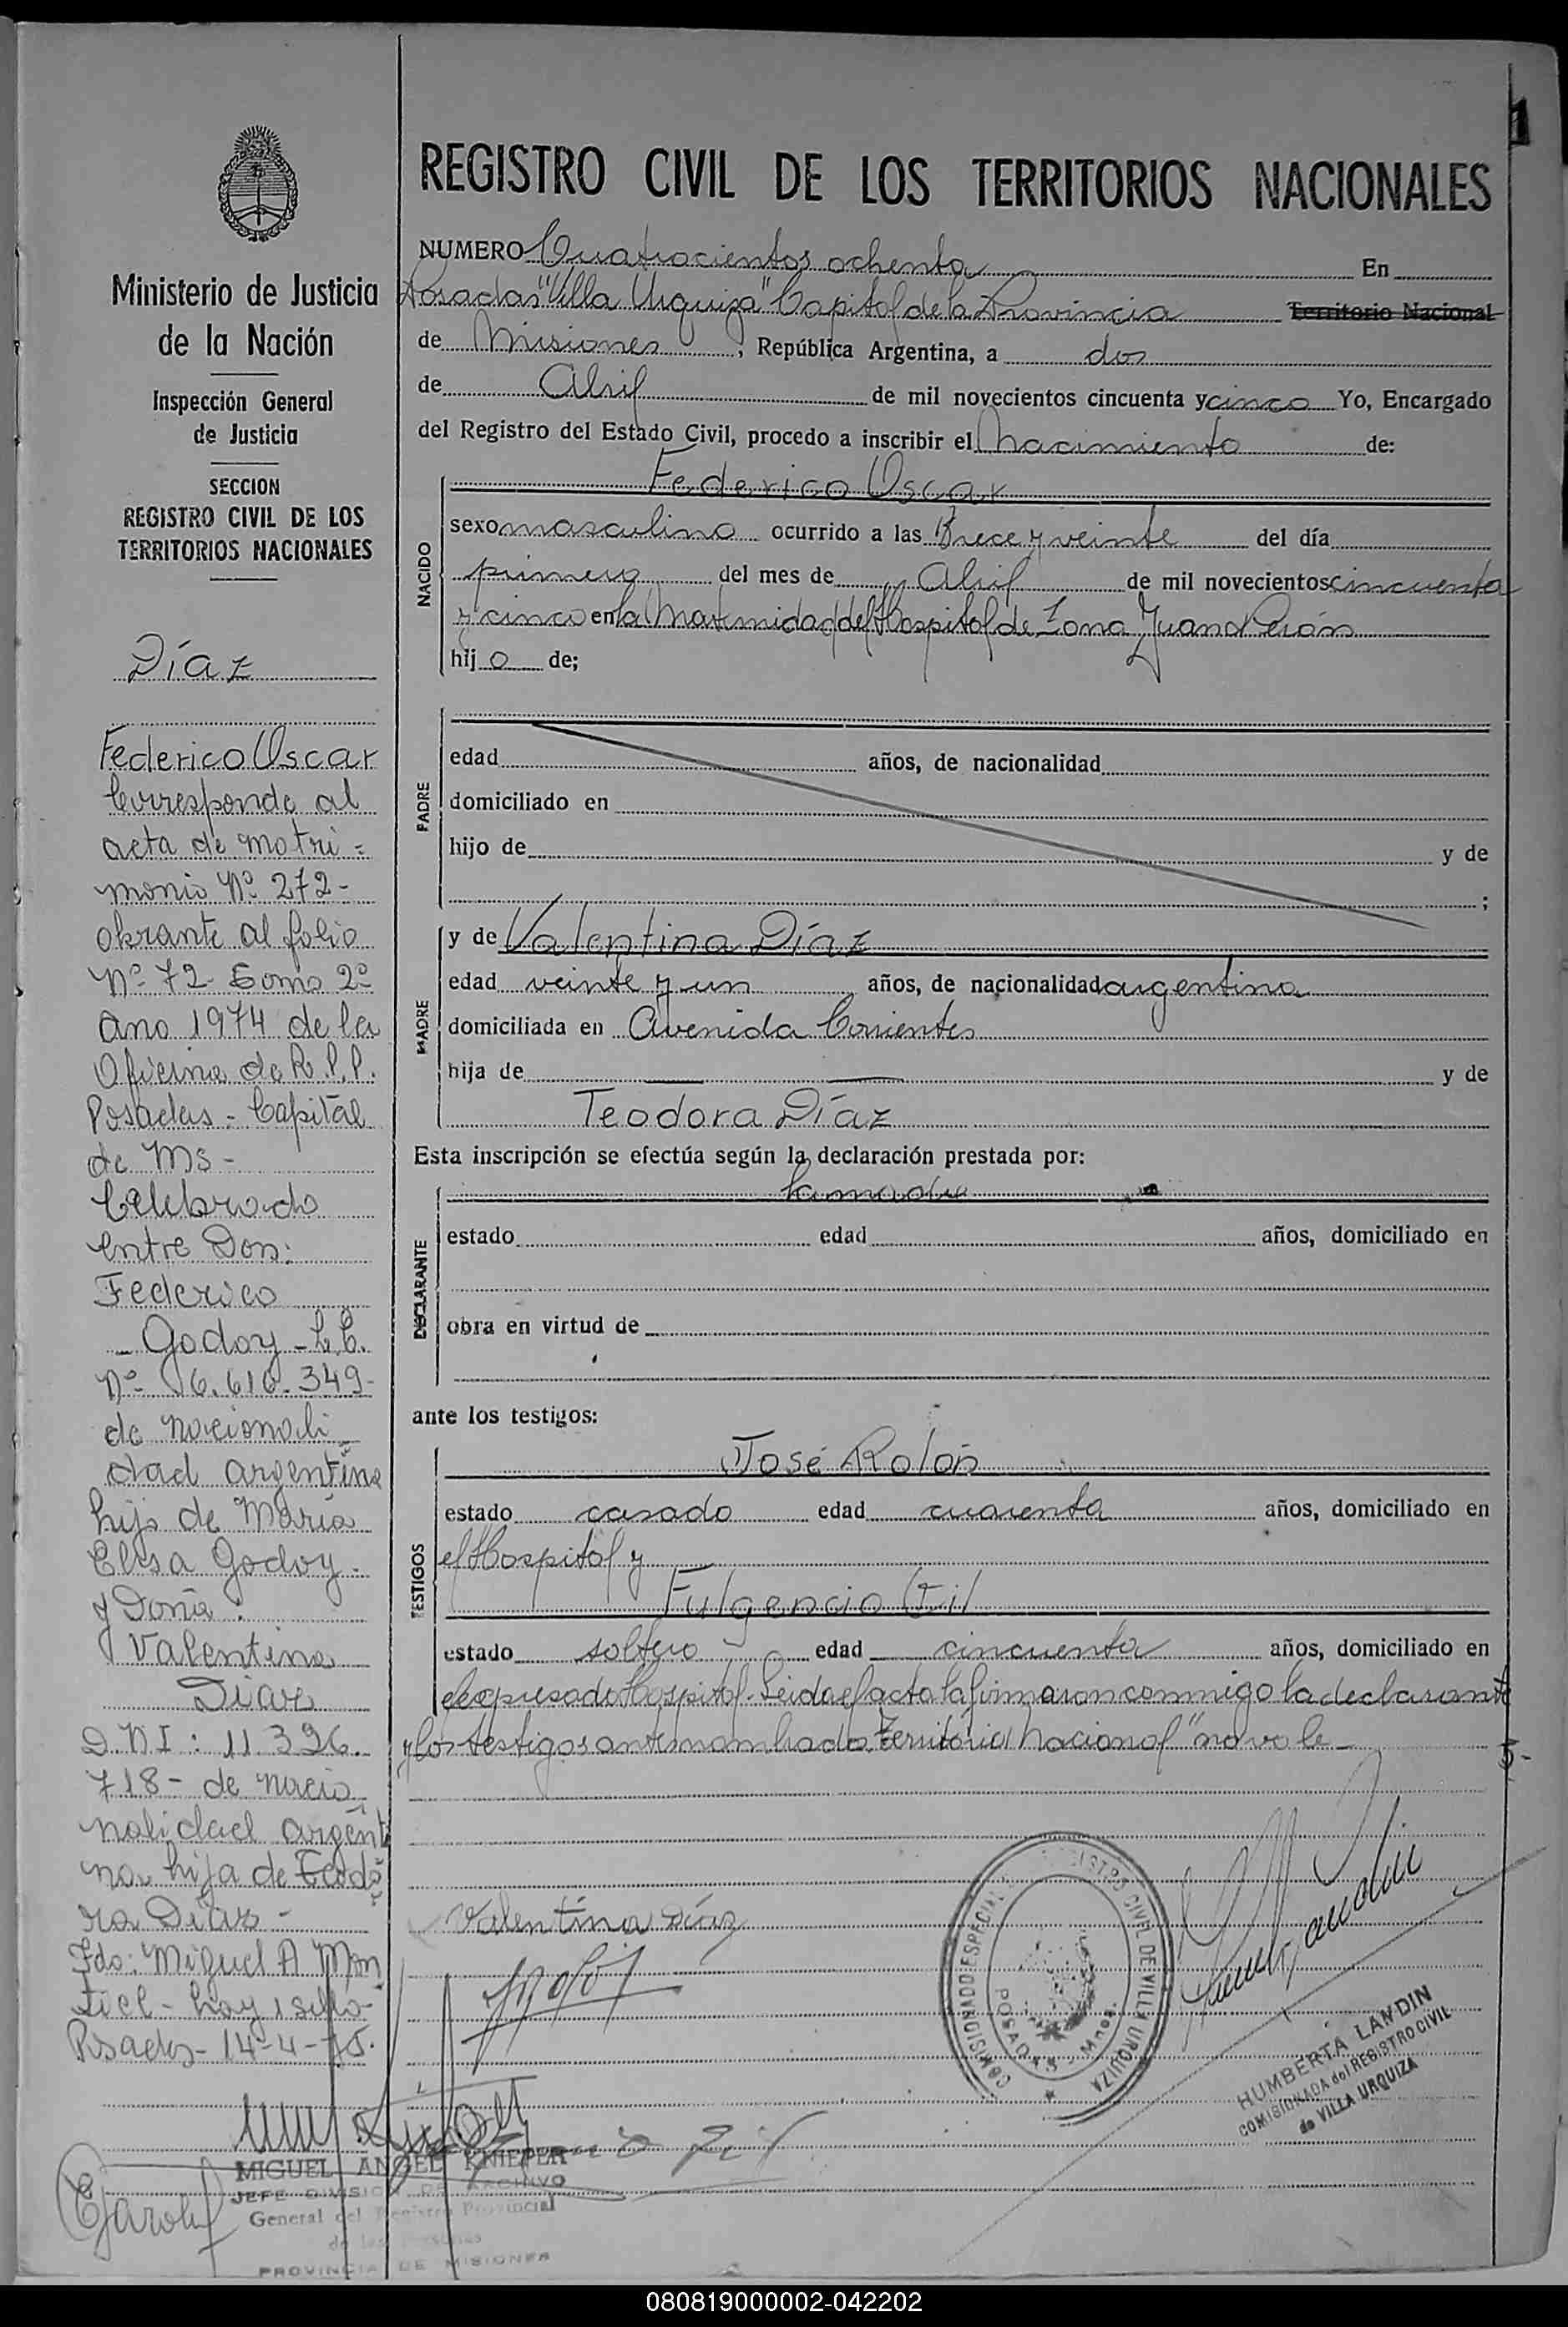 1
Ministerio de Justicia
de la Nación
Inspección General
de Justicia
SECCION
REGISTRO CIVIL DE LOS
TERRITORIOS NACIONALES
Díaz
Federico Oscar
Corresponde al
acta de matri=
monio Nº 272-
obrante al folio
Nº 72 Tomo 2º
Año 1974 de la
Oficina de R.P.P.
Posadas - Capital
de Ms -
Celebrado
entre Don:
Federico
- Godoy - L.E.
Nº
de nacionali
dad argentina
hijo de María
Elisa Godoy -
y Doña.
Valentina
Diaz
D.N.I: 11.396.
718 - de nacio
nalidad argenti
na hija de Teodo
ra Diaz -
Fdo: Miguel A Mon
tiel - hay 1 sello -
Posadas - 14-4-75.
MIGUEL ANGEL KNIEPER
JEFE DIVISION DE ARCHIVO
General del Registro Provincial
de las Personas
PROVINCIA DE MISIONES
REGISTRO CIVIL DE LOS TERRITORIOS NACIONALES
NUMERO Cuatrocientos ochenta En
Posadas "Villa Urquiza" Capital de la Provincia Territorio Nacional
de Misiones, República Argentina, a dos
de Abril de mil novecientos cincuenta y cinco Yo, Encargado
del Registro del Estado Civil, procedo a inscribir el Nacimiento de:
NACIDO
Federico Oscar
sexo masculino ocurrido a las trece y veinte del día
primero del mes de Abril de mil novecientos cincuenta
y cinco en la Maternidad del Hospital de Zona Juan Perón
hijo de;
PADRE
edad años, de nacionalidad
domiciliado en
hijo de y de
;
MADRE
y de Valentina Díaz
edad veinte y un años, de nacionalidad argentina
domiciliada en Avenida Corrientes
hija de y de
Teodora Díaz
Esta inscripción se efectúa según la declaración prestada por:
DECLARANTE
la madre
estado edad años, domiciliado en
obra en virtud de
ante los testigos:
TESTIGOS
José Rolón
estado casado edad cuarenta años, domiciliado en
el Hospital y
Fulgencio Gil
estado soltero edad cincuenta años, domiciliado en
el expresado Hospital. Leida el acta la firmaron conmigo la declarante
y los testigos antes nombrados. "Territorio Nacional" no vale -
Valentina Díaz
COMISIONADO ESPECIAL REGISTRO CIVIL DE VILLA URQUIZA
POSADAS - Mnes.
HUMBERTA LANDIN
COMISIONADA del REGISTRO CIVIL
de VILLA URQUIZA
080819000002-042202